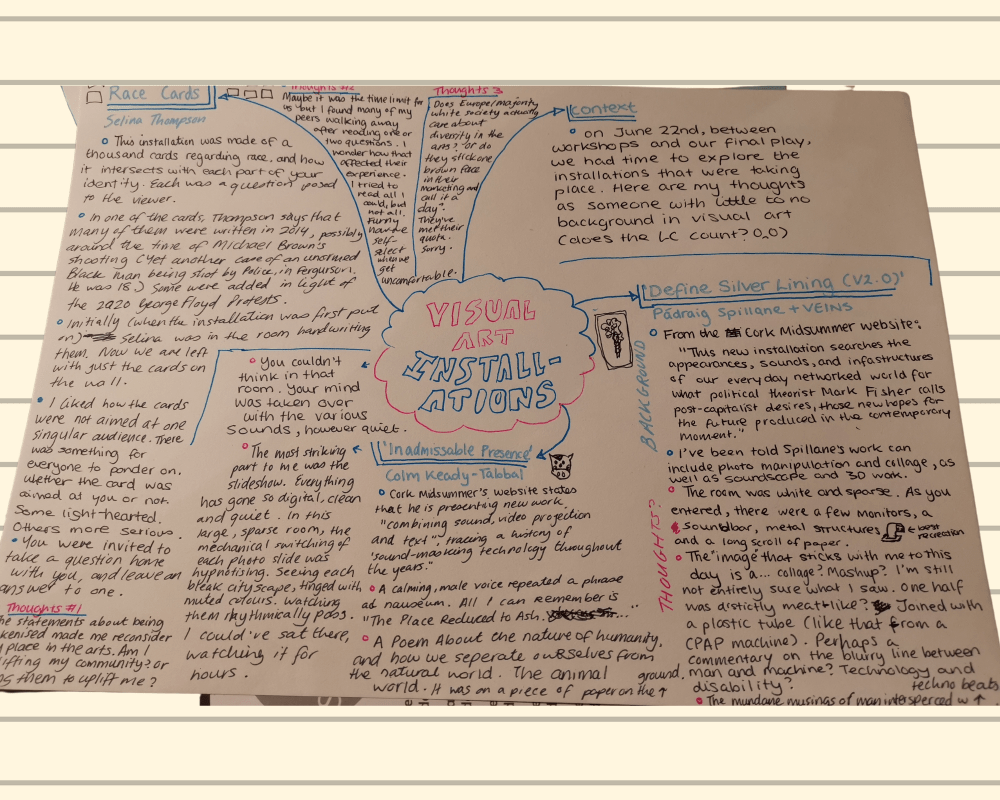 VISUAL
ART
INSTALL-
ATIONS
Context
on June 22nd, between
workshops and our final play,
we had time to explore the
installations that were taking
place. Here are my thoughts
as someone with little to no
background in visual art
(does the LC count? 0_0)
Race Cards
Selina Thompson
This installation was made of a
thousand cards regarding race, and how
it intersects with each part of your
identity. Each was a question posed
to the viewer.
In one of the cards, Thompson says that
many of them were written in 2014, possibly
around the time of Michael Brown's
shooting (Yet another case of an unarmed
Black man being shot by Police, in Ferguson.
He was 18.) Some were added in light of
the 2020 George Floyd Protests.
Initially (when the installation was first put
on) Selina was in the room handwriting
them. Now we are left
with just the cards on
the wall.
I liked how the cards
were not aimed at one
singular audience. There
was something for
everyone to ponder on.
Wether the card was
aimed at you or not.
Some light hearted.
Others more serious.
You were invited to
take a question home
with you, and leave an
answer to one.
Thoughts #1
statements about being
made me reconsider
place in the arts. Am I
lifting my community? or
them to uplift me?
Thoughts #2
Maybe it was the time limit for
us but I found many of my
peers walking away
after reading one or
two questions. I
wonder how that
affected their
experience.
I tried to
read all I
could, but
not all.
Funny
how we
self-
select
when we
get
uncomfortable.
Thoughts 3
Does Europe/majority
white society actually
care about
diversity in the
arts? or do
they stick one
brown face
in their
marketing and
call it a
day".
They've
met their
quota.
Sorry.
'Define Silver Lining (V2.0)'
Pádraig Spillane + VEINS
BACKGROUND
From the Cork Midsummer website:
"This new installation searches the
appearances, sounds, and infastructures
of our everyday networked world for
what political theorist Mark Fisher calls
post-capitalist desires, those new hopes for
the future produced in the contemporary
moment."
I've been told Spillane's work can
include photo manipulation and collage, as
well as soundscape and 3D work.
THOUGHTS?
The room was white and sparse. As you
entered, there were a few monitors, a
soundbar, metal structures
and a long scroll of paper.
best
recreation
The image that sticks with me to this
day is a... collage? Mashup? I'm still
not entirely sure what I saw. One half
was distictly meatlike? Joined with
a plastic tube (like that from a
CPAP machine). Perhaps a
commentary on the blurry line between
man and machine? Technology and
disability?
The mundane musings of man interspersed w
techno beats
'Inadmissable Presence'
Colm Keady-Tabbal
Cork Midsummer's website states
that he is presenting new work,
"combining sound, video projection
and text", tracing a history of
'sound-mapping technology throughout
the years."
A calming, male voice repeated a phrase
ad nauseum. All I can remember is
"The Place Reduced to Ash.
A Poem About the nature of humanity,
and how we seperate ourselves from
the natural world. The animal
world. It was on a piece of paper on the
ground.
You couldn't
think in that
room. Your mind
was taken over
with the various
sounds, however quiet.
The most striking
part to me was the
slideshow. Everything
has gone so digital, clean
and quiet. In this
large, sparse room, the
mechanical switching of
each photo slide was
hypnotising. Seeing each
bleak cityscape, tinged with
muted colours. Watching
them rhythmically pass.
I could've sat there,
watching it for
hours.